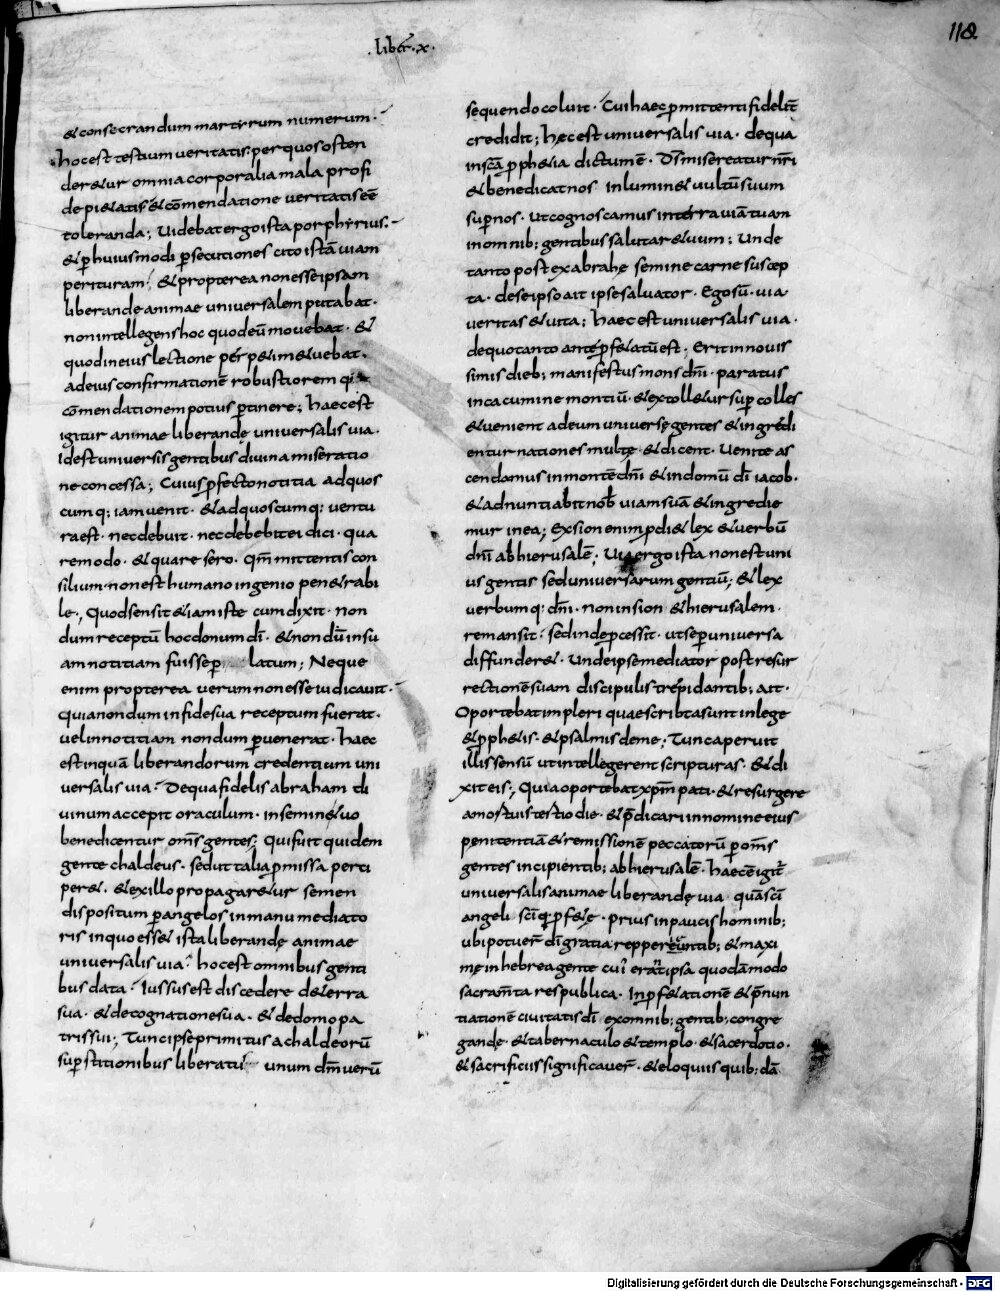 · liber · x ·
118
& consecrandum martyrum numerum ·
hoc est testium veritatis · per quos osten
deretur omnia corporalia mala pro fi
de pietatis & cōmendatione veritatis eē
toleranda ; Videbat ergo ista porphyrius ·
& p̱ huius modi p̱secutiones cito istā viam
perituram ; & propterea non esse ipsam
liberandę animae universalem putabat ·
non intellegens hoc quod eū movebat · &
quod in eius lectione perpetim &uebat ·
ad eius confirmationē robustiorem q·
cōmendationem potius p̱tinere ; haec est
igitur animae liberandę universalis via ·
Id est universis gentibus divina miseratio
ne concessa ; Cuius p̱fecto notitia ad quos
cumq; iam venit · & ad quoscumq; ventu
ra est · nec debuit · nec debebit ei dici · qua
re modo · & quare sero · Qm̄ mittentis con
silium · non est humano ingenio penetrabi
le ; Quod sensit & iam iste cum dixit · non
dum receptū hoc donum dī · & nondū in su
am notitiam fuisse p̱ latum ; Neque
enim propterea verum non esse iudicavit ·
quia nondum in fide sua receptum fuerat ·
vel in notitiam nondum p̱venerat · haec
est inquā liberandorum credentium uni
versalis via · De qua fidelis abraham di
vinum accepit oraculum · in semine tuo
benedicentur om̄s gentes ; Qui fuit quidem
gente chaldeus · sed ut talia p̱missa perci
peret · & ex illo propagaretur semen
dispositum p̱ angelos in manu mediato
ris in quo esset ista liberandę animae
universalis via · hoc est omnibus genti
bus data · Iussus est discedere de terra
sua · & de cognatione sua · & de domo pa
tris sui ; Tunc ipse primitus a chaldeorū
sup̱stitionibus liberatus unum dm̄ verū
sequendo coluit · Cui haec p̱mittenti fidelit̄
credidit ; hęc est universalis via · de qua
in sc̄a p̱ph&ia dictum ē · Ds̄ misereatur nr̄i
& benedicat nos inlumin& vultū suum
sup̱ nos · ut cognoscamus in terra viā tuam
in omnib; gentibus salutare tuum ; Unde
tanto post ex abrahę semine carne suscep
ta · de se ipso ait ipse salvator · Ego sū · via
veritas & vita ; haec est universalis via ·
de quo tanto ante p̱f&atū est · Erit in novis
simis dieb; manifestus mons dn̄i · paratus
in cacumine montiū · & extolletur sup̱ colles
& venient ad eum universę gentes & ingredi
entur nationes multę · & dicent · Venite as
cendamus in montē dn̄i & in domū dī iacob ·
& adnuntiabit nob̄ viam suā & ingredie
mur in ea ; Ex sion enim p̱di& lex & verbū
dn̄i ab hierusalē ; Via ergo ista non est uni
us gentis sed universarum gentiū ; & lex
verbumq; dn̄i · non in sion & hierusalem ·
remansit · sed inde p̱cessit · ut se p̱ universa
diffunderet · Unde ipse mediator post resur
rectionē suam discipulis trepidantib; ait ·
Oportebat impleri quae scribta sunt in lege
& p̱ph&is · & psalmis de me ; Tunc aperuit
illis sensū ut intellegerent scripturas · & di
xit eis ; Quia oportebat xp̄m pati · & resurgere
a mortuis tertio die · & p̄dicari in nomine eius
penitentiā & remissionē peccatorū p̱ om̄s
gentes incipientib; ab hierusalē · haec ē igit̄
universalis animae liberandę via quā sc̄i
angeli sc̄iq; p̱f&ę · prius in paucis hominib;
ubi potuer̄ dī gratia reppereuntib; & maxi
mę in hebrea gente cui erat ipsa quodāmodo
sacram̄ta res publica · In p̱f&ationē & p̄nun
tiationē civitatis dī ex omnib; gentib; congre
gandę · & tabernaculo & templo · & sacerdotio ·
& sacrificiis significaver̄ · & eloquiis quib; dā
Digitalisierung gefördert durch die Deutsche Forschungsgemeinschaft · DFG